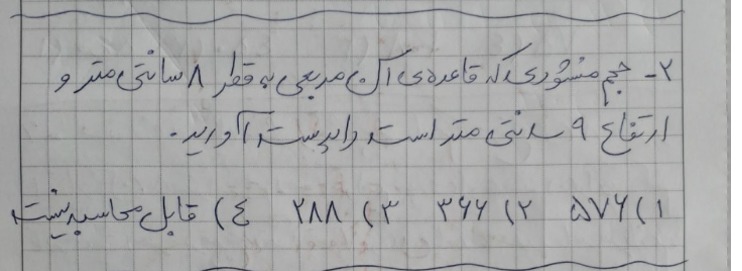 ۲- حجم منشوری که قاعده‌ی آن مربعی به قطر ۸ سانتی متر و
ارتفاع ۹ سانتی متر است را بدست آورید.
۱) ۵۷۶ ۲) ۳۶۶ ۳) ۲۸۸ ٤) قابل محاسبه نیست